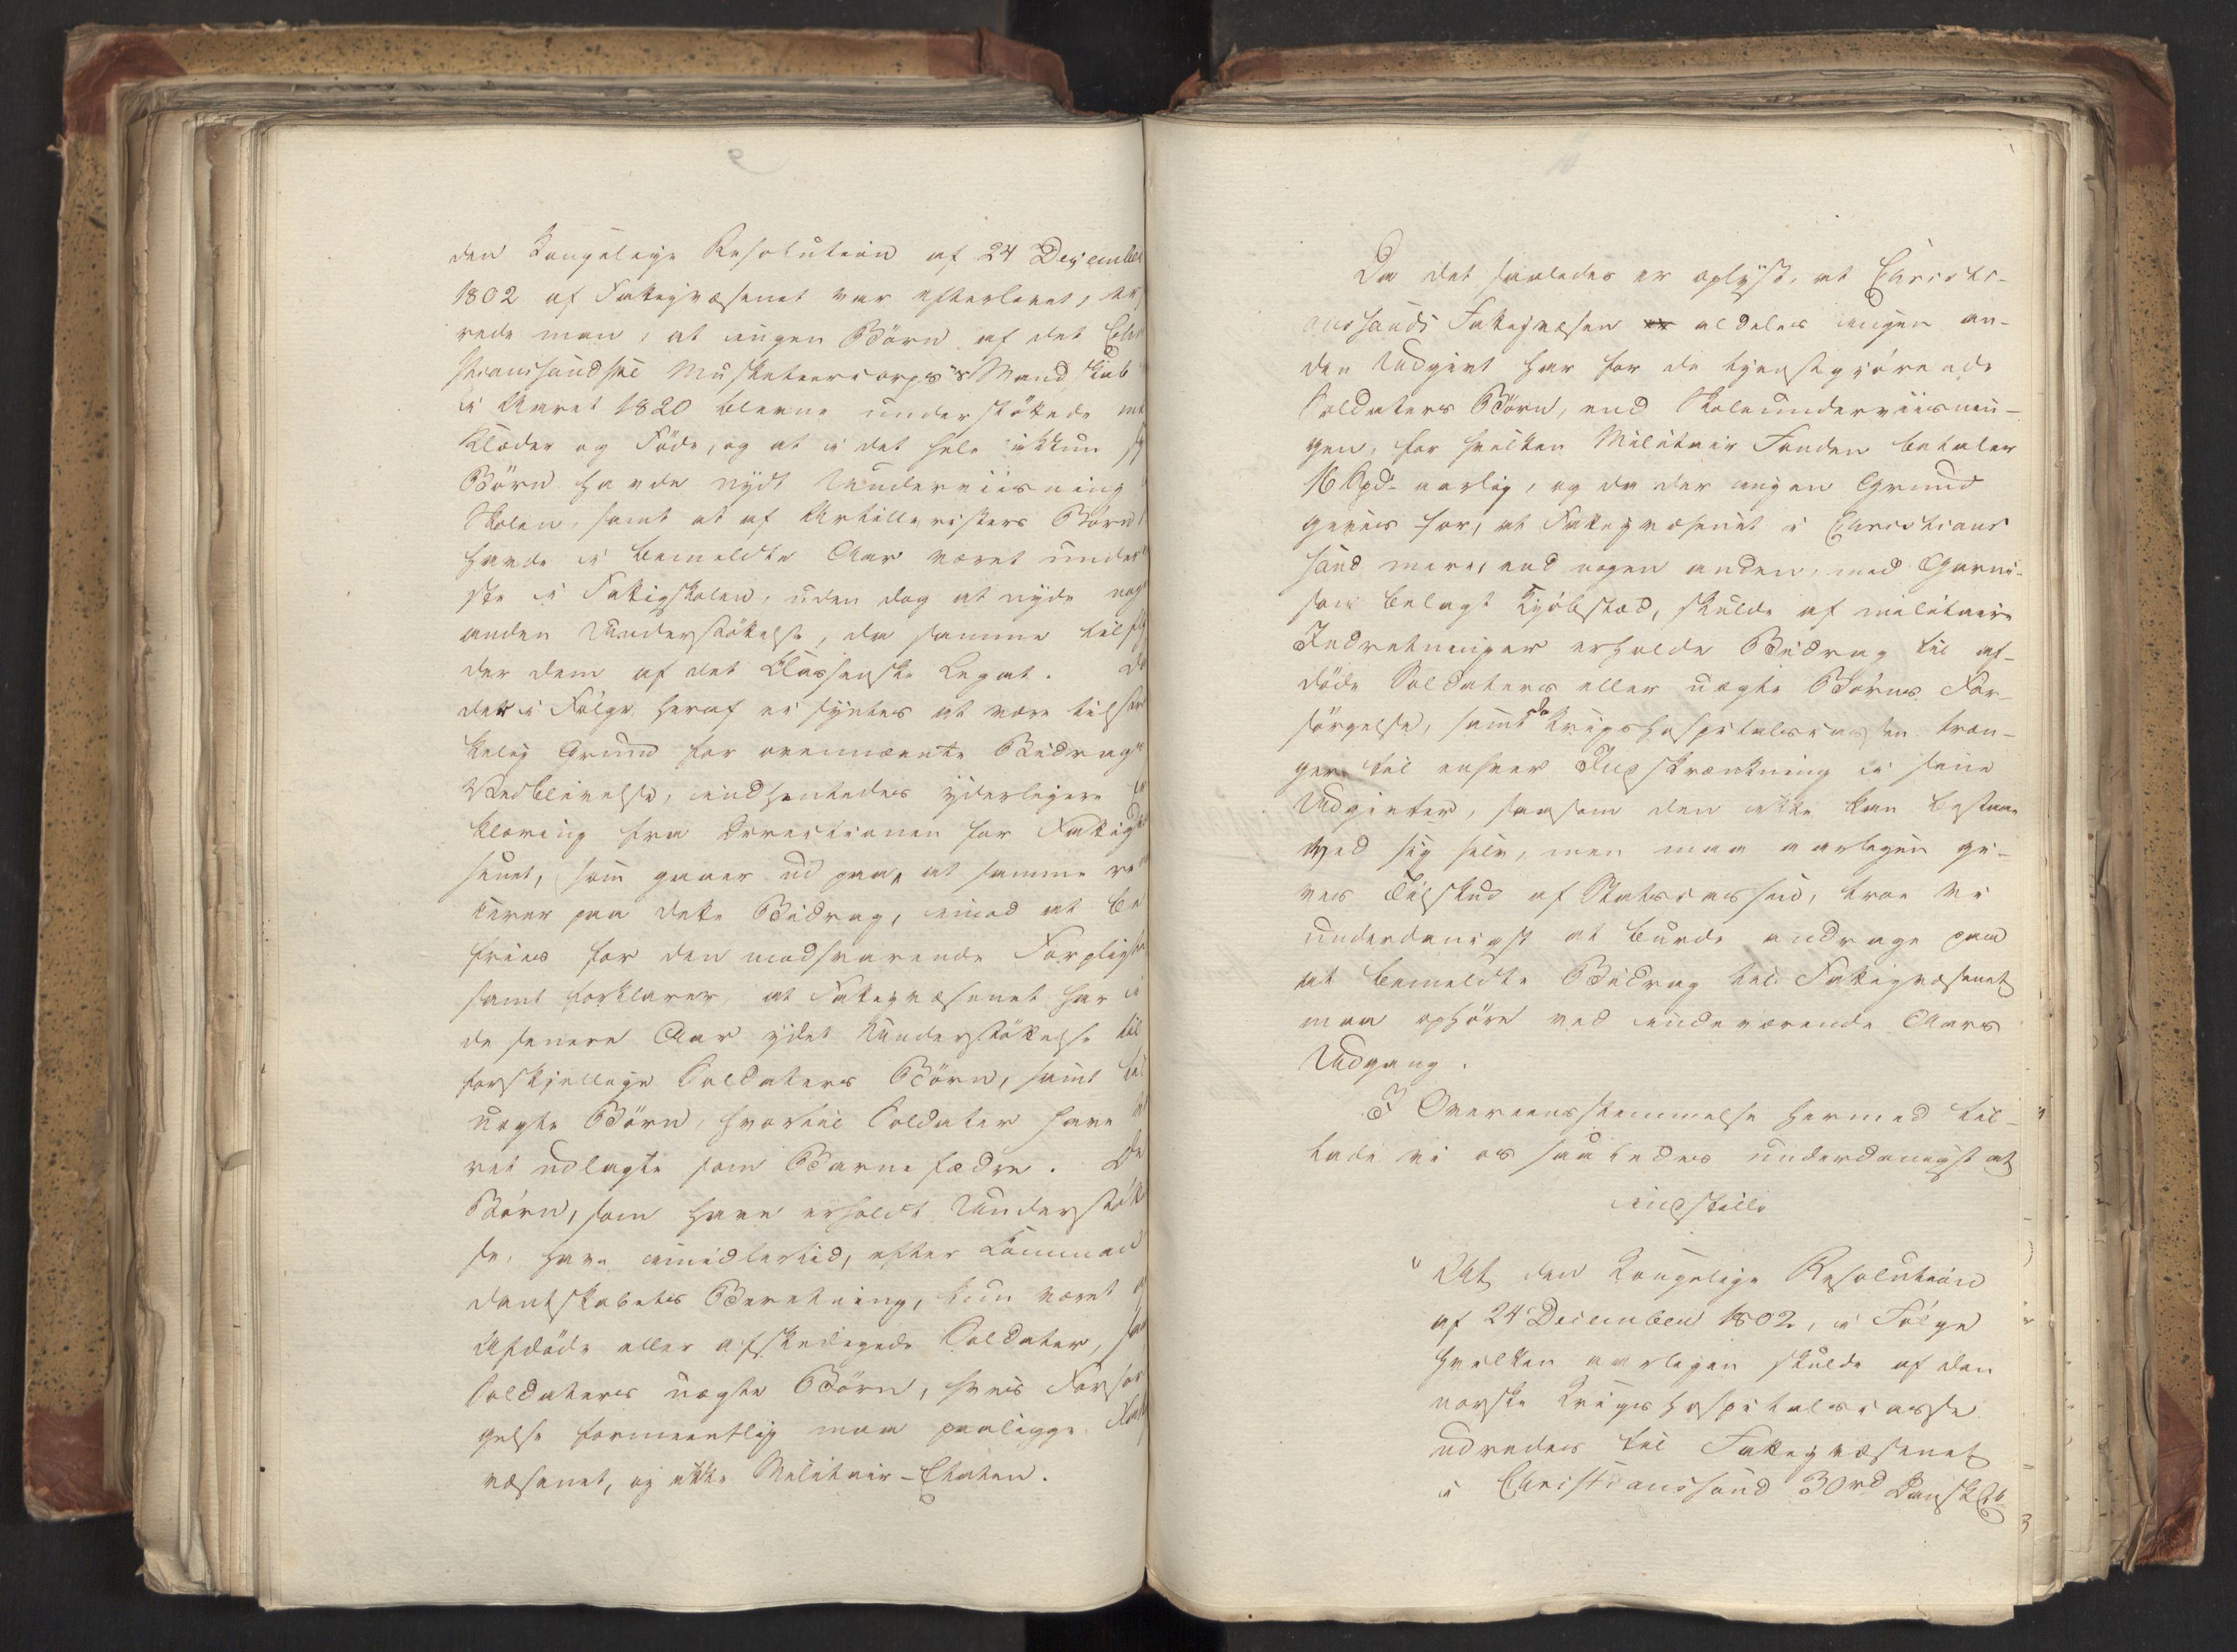 den Kongelige Resolution af 24 December
1802 af Fattigvæsenet var efterlevet, er
rede man, at ingen Börn af det Chri
stianssandske Musketeercorps's Mandskab
i Aaret 1820 blevne understöttede med
Klæder og Föde, og at i det hele ikkun
Börn havde nydt Underviisning
Skolen, samt at af Artilleristers Börn
havde i bemeldte Aar været under
ste i Fattigskolen, uden dog at nyde nog
anden Understöttelse, da samme tilfly
der dem af det Classenske Legat. Da
det i Fölge heraf ei syntes at være tilstræk
kelig Grund for ovennævnte Bidrags
Vedblivelse, indhentedes yderligere Er
klæring fra Directionen for Fattigvæ
senet, som gaaer ud paa, at samme re
curer paa dette Bidrag, imod at be
fries for den modsvarende Forpligtelse
samt forklarer, at Fattigvæsenet har i
de senere Aar ydet Understöttelse til
forskjellige Soldaters Börn, samt til
uægte Börn, hvortil Soldater have væ
ret udlagte som Barnefædre. De
Börn, som have erholdt Understöttel
se, have imidlertid, efter Comman
dantskabets Beretning, kun været af
Afdöde eller afskedigede Soldater, samt
Soldaters uægte Börn, hvis Forsör
gelse formeentlig maa paaligge Fattig
væsenet, og ikke Militair-Etaten.
Da det saaledes er oplyst, at Christi-
anssands Fattigvæsen aldeles ingen an-
den Udgivt har for de tjenstgjörende
Soldaters Börn, end Skoleunderviisnin-
gen, for hvilken Militair Fonden betaler
16 Spd. aarlig, og da der ingen Grund
gives for, at Fattigvæsenet i Christians
sand mere, end nogen anden, med Garni-
son belagt Kjöbstæd, skulde af militaire
Indretninger erholde Bidrag til af-
döde Soldaters eller uægte Börns For-
sörgelse, samt da Krigshospitalscassen træn-
ger til enhver Indskrænkning i sine
Udgivter, saasom den ikke kan bestaae
ved sig selv, men maa aarligen gi-
ves Tilskud af Statscassen, troe vi
underdanigst at burde andrage paa
at bemeldte Bidrag til Fattigvæsenet
maa ophöre ved indeværende Aars
Udgang.
I Overeensstemmelse hermed til-
lade vi os saaledes underdanigst at
indstille
"At den Kongelige Resolution
af 24 December 1802, i Fölge
hvilken aarligen skulde af den
norske Krigshospitalscasse
udredes til Fattigvæsenet
i Christianssand 30 rd Dansk Ct